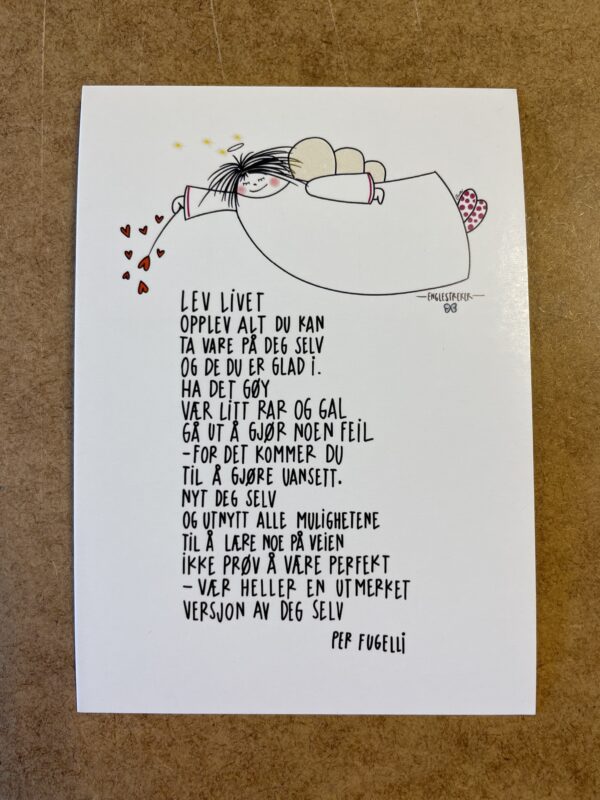 -ENGLESTREKER-
LEV LIVET
OPPLEV ALT DU KAN
TA VARE PÅ DEG SELV
OG DE DU ER GLAD I.
HA DET GØY
VÆR LITT RAR OG GAL
GÅ UT Å GJØR NOEN FEIL
-FOR DET KOMMER DU
TIL Å GJØRE UANSETT.
NYT DEG SELV
OG UTNYTT ALLE MULIGHETENE
TIL Å LÆRE NOE PÅ VEIEN
IKKE PRØV Å VÆRE PERFEKT
- VÆR HELLER EN UTMERKET
VERSJON AV DEG SELV
PER FUGELLI